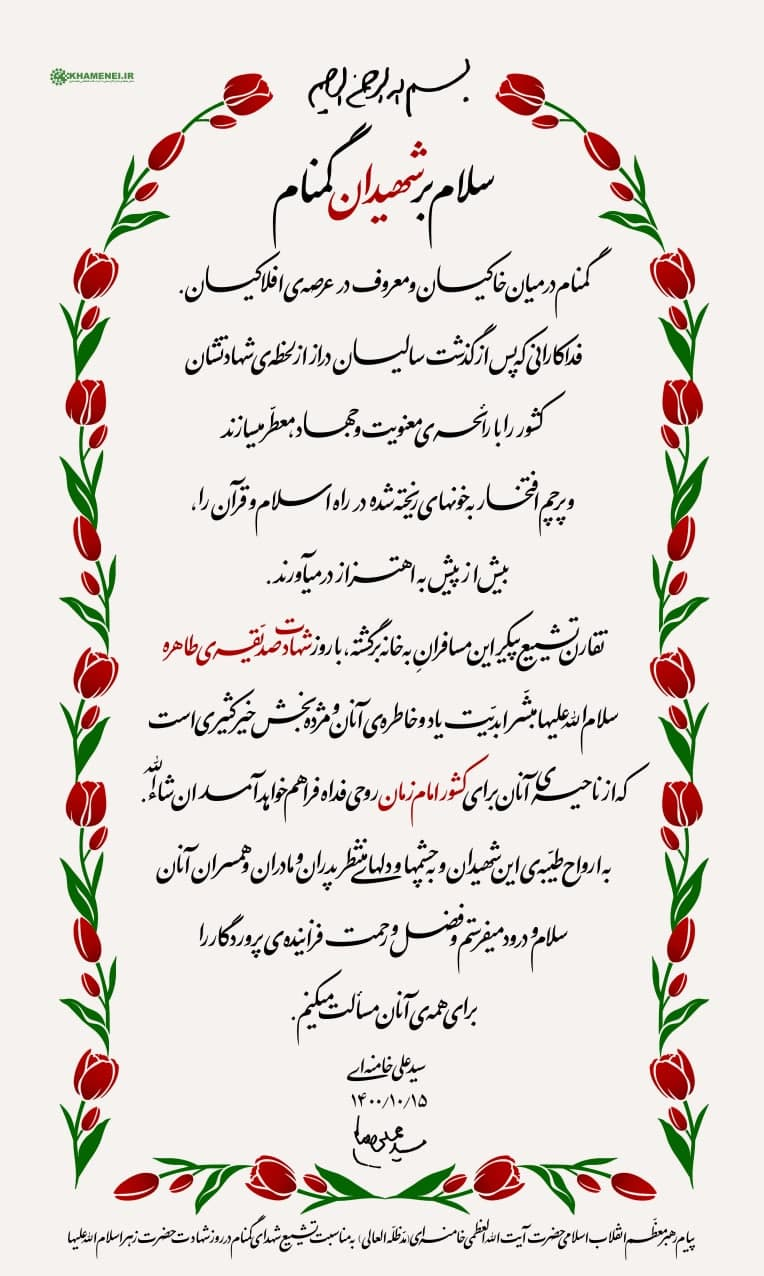 KHAMENEI.IR
بسم الله الرحمن الرحیم
سلام بر شهیدان گمنام
گمنام در میان خاکیان و معروف در عرصه‌ی افلاکیان.
فداکارانی که پس از گذشت سالیان دراز از لحظه‌ی شهادتشان
کشور را با رائحه‌ی معنویت و جهاد، معطّر میسازند
و پرچم افتخار به خونهای ریخته شده در راه اسلام و قرآن را،
بیش از پیش به اهتزاز درمیآورند.
تقارن تشییع پیکر این مسافرانِ به خانه برگشته، با روز شهادت صدّیقه‌ی طاهره
سلام‌الله‌علیها مبشّر ابدیّت یاد و خاطره‌ی آنان و مژده‌بخش خیر کثیری است
که از ناحیه‌ی آنان برای کشور امام زمان روحی فداه فراهم خواهد آمد ان‌شاءالله.
به ارواح طیّبه‌ی این شهیدان و به چشمها و دلهای منتظر پدران و مادران و همسران آنان
سلام و درود میفرستم و فضل و رحمت فزاینده‌ی پروردگار را
برای همه‌ی آنان مسألت میکنم.
سیّدعلی خامنه‌ای
۱۴۰۰/۱۰/۱۵
پیام رهبر معظّم انقلاب اسلامی حضرت آیت‌الله العظمی خامنه‌ای (مدّظلّه العالی) به مناسبت تشییع شهدای گمنام در روز شهادت حضرت زهرا سلام‌الله‌علیها